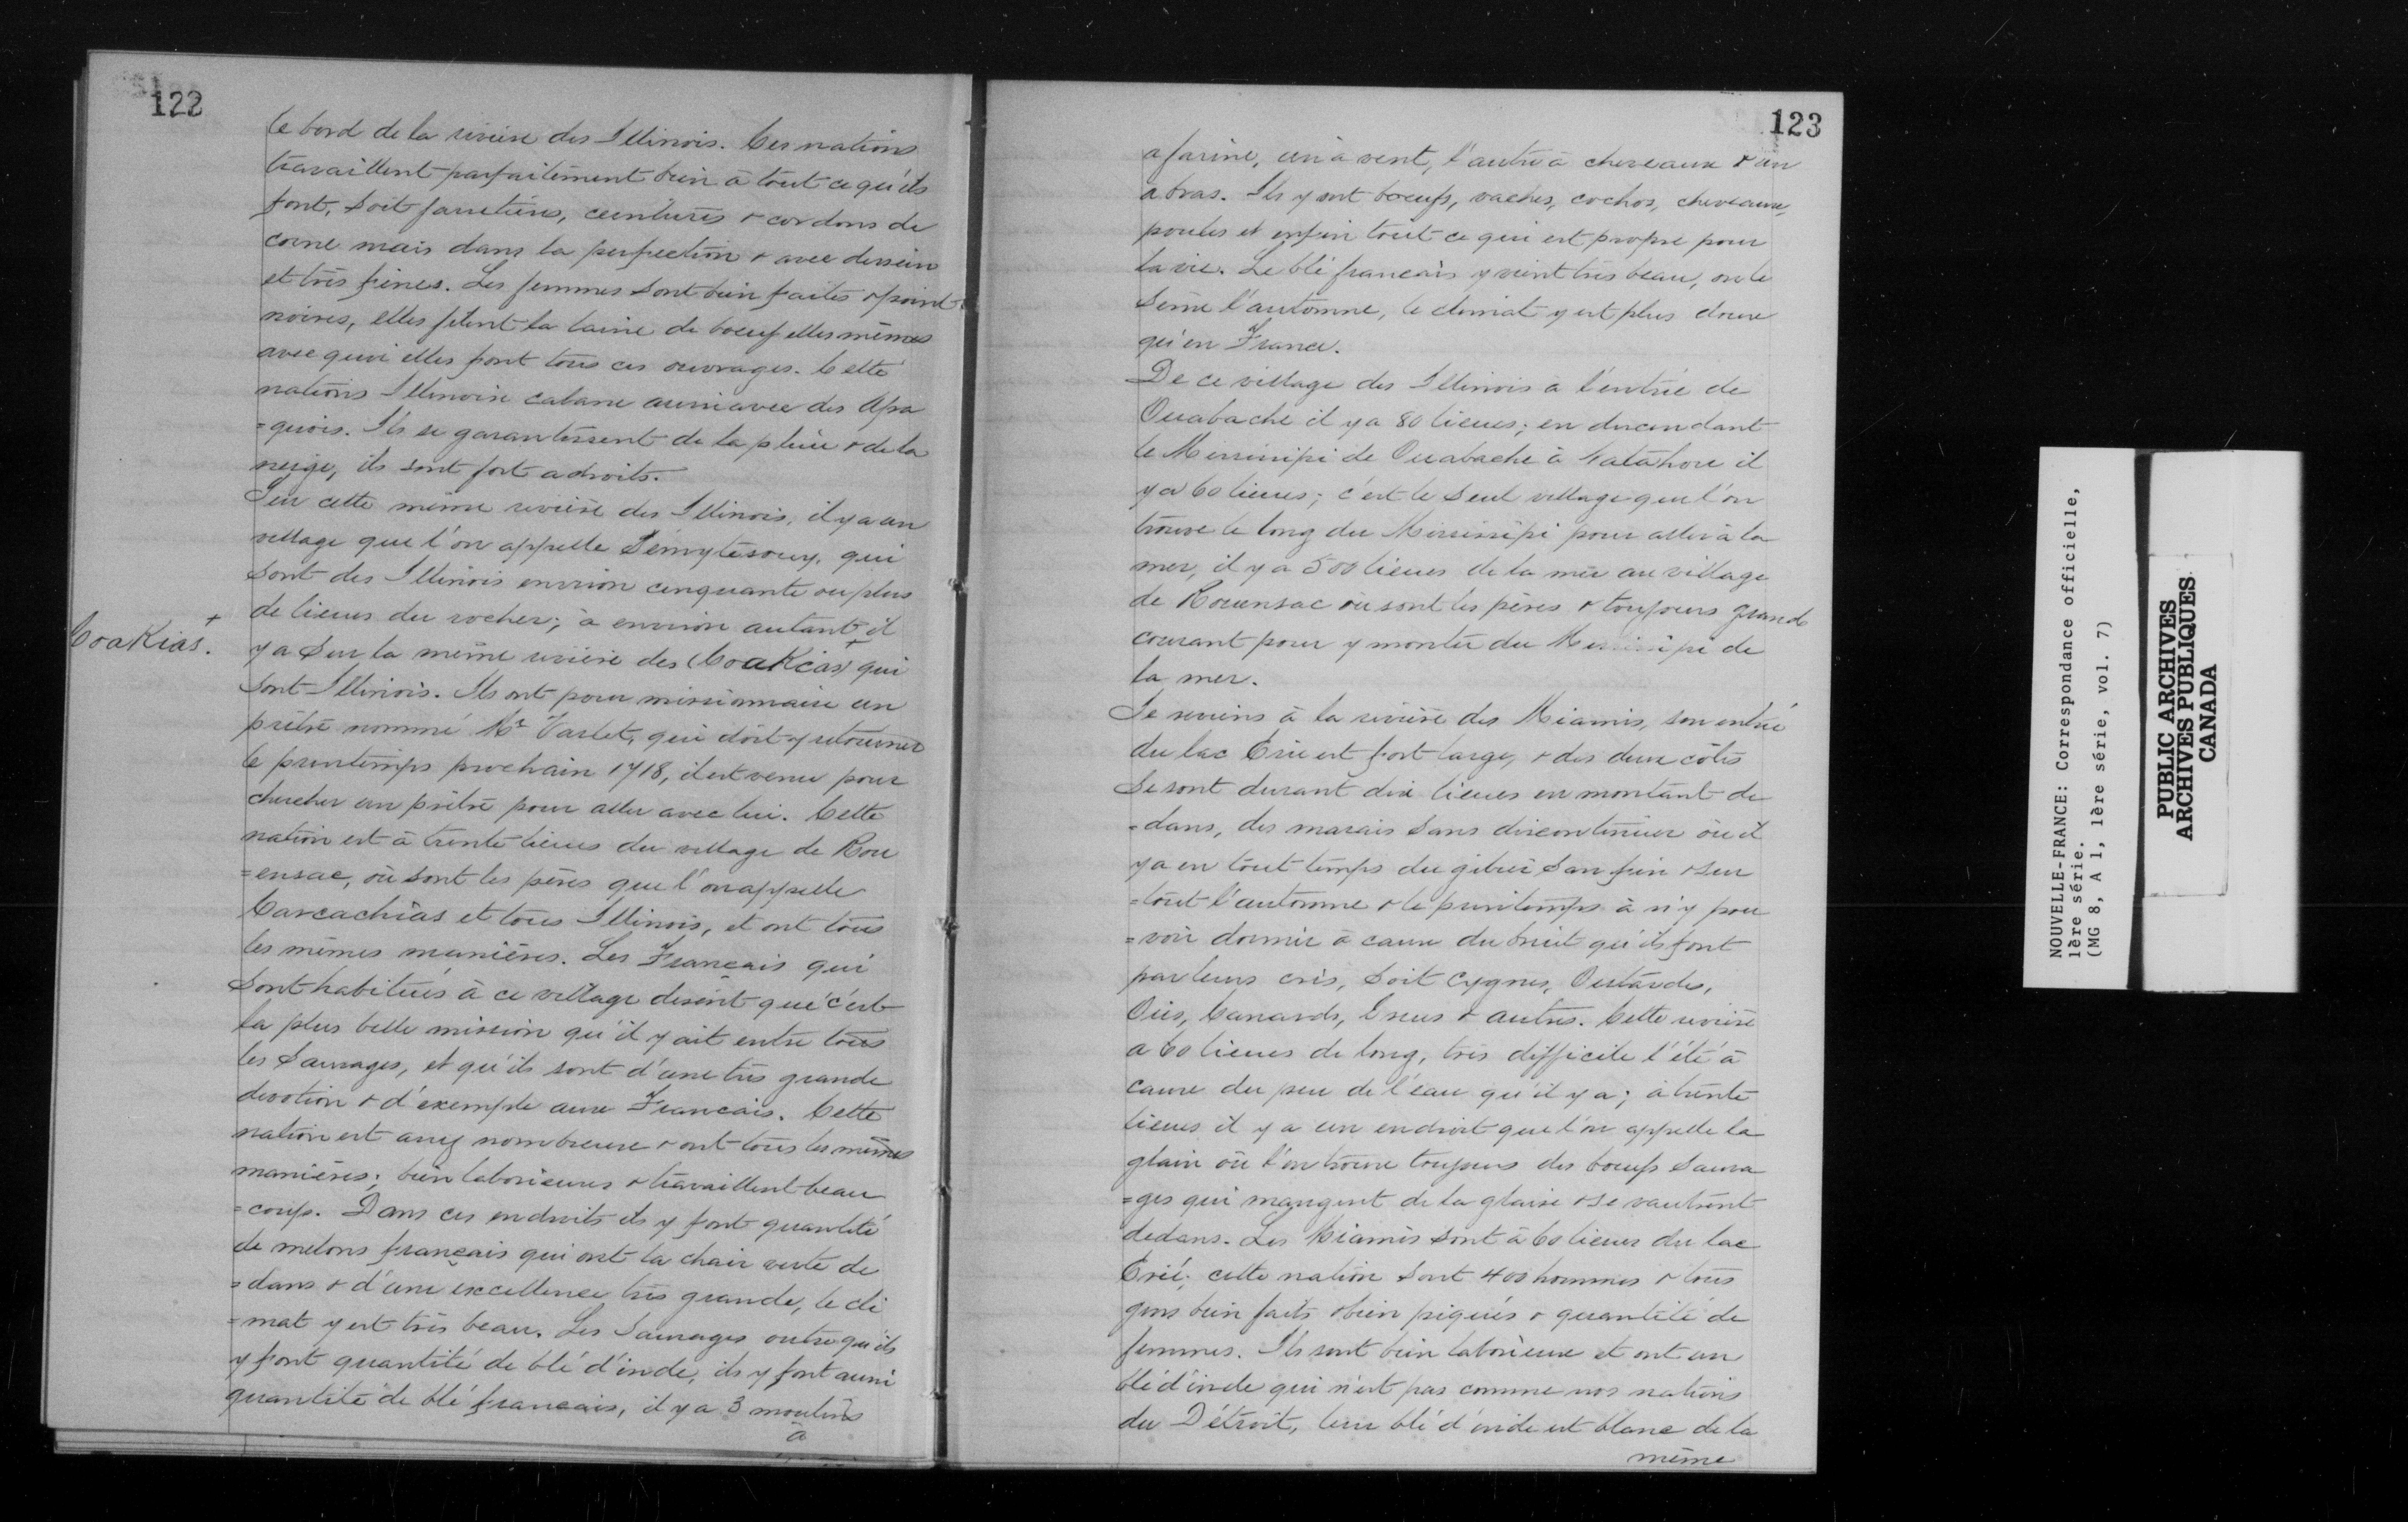 122
le bord de la rivière des Illinois. Ces nations
travaillent parfaitement bien à tout ce qu'ils
font, soit jarretières, ceintures & cordons de
corne mais dans la perfection & avec dessein
et très fines. Les femmes sont bien faites & point
noires, elles filent la laine de boeuf elles mêmes
avec quoi elles font tous ces ouvrages. Cette
nations Illinoise cabane aussi avec des Apa
=quois. Ils se garantissent de la pluie & de la
neige, ils sont fort adroits.
Sur cette même rivière des Illinois, il y a un
village que l'on appelle Pemytesouy, qui
sont des Illinois environ cinquante ou plus
de lieues du rocher; à environ autant il
Coakias.+
y a sur la même rivière des (Coakias)+ qui
sont Illinois. Ils ont pour missionnaire un
prêtre nommé Mr Varlet, qui doit y retourner
le printemps prochain 1718, il est venu pour
chercher un prêtre pour aller avec lui. Cette
nation est à trente lieues du village de Rou
=ensac, où sont les pères que l'on appelle
Carcachias et tous Illinois, et ont tous
les mêmes manières. Les Français qui
sont habitués à ce village disent que c'est
la plus belle mission qu'il y ait entre tous
les Sauvages, et qu'ils sont d'une très grande
devotion & d'exemple aux Francais. Cette
nation est assez nombreuse & ont tous les mêmes
manières; bien laborieux & travaillent beau
=coup. Dans ces endroits ils y font quantité
de melons français qui ont la chair verte de
=dans & d'une excellence très grande, le cli
=mat y est très beau. Les Sauvages outre qu'ils
y font quantité de blé d'inde, ils y font aussi
quantité de blé francais, il y a 3 moulins
à
123
a farine, un à vent, l'autre à cheveaux & un
à bras. Ils y ont boeufs, vaches, cochos, cheveaux,
poules et enfin tout ce qui est propre pour
la vie. Le blé francais y vient très beau, on le
sème l'automne, le climat y est plus doux
qu'en France.
De ce village des Illinois a l'entrée de
Ouabache il y a 80 lieues; en descendant
le Missisipi de Ouabache à Natahou il
y a 60 lieues; c'est le seul village que l'on
trouve le long du Missisipi pour aller à la
mer, il y a 500 lieues de la mer au village
de Rouensac où sont les pères & toujours grand
courant pour y monter du Missisipi de
la mer.
Je reviens à la rivière des Miamis, son entrée
du lac Erié est fort large, & des deux côtés
Se sont durant dix lieues en montant de
=dans, des marais sans discontinuer où il
y a en tout temps du gibier san fin & sur
=tout l'automne & le printemps à n'y pou
=voir dormir à cause du bruit qu'ils font
par leurs cris, soit Cygnes, Outardes,
Oies, Canards, Grues & autres. Cette rivière
a 60 lieues de long, très difficile l'été à
cause du peu de l'eau qu'il y a; à trente
lieues il y a un endroit que l'on appelle la
glaise où l'on trouve toujours des boeufs Sauva
=ges qui mangent de la glaise & se vautrent
dedans. Les Miamis sont à 60 lieues du lac
Erié; cette nation sont 400 hommes & tous
gens bien faits & bien piqués & quantité de
femmes. Ils sont bien laborieux et ont un
blé d'inde qui n'est pas comme nos nations
du Détroit, leur blé d'inde est blanc de la
même
NOUVELLE-FRANCE: Correspondance officielle,
1ère série.
(MG 8, A 1, 1ère série, vol. 7)
PUBLIC ARCHIVES
ARCHIVES PUBLIQUES
CANADA